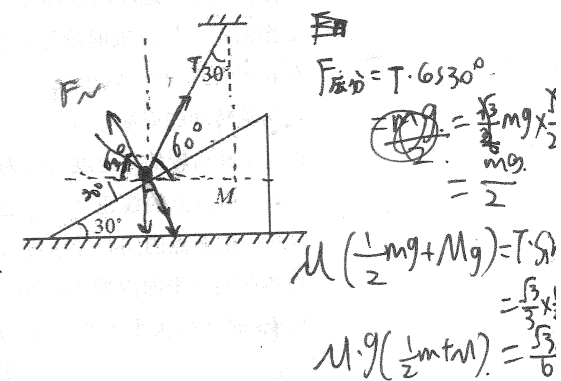 T
30°
F_N
60°
60°
30°
M
30°
F底分 = T·cos30°
= √3/3 mg ×
= mg/2
μ(1/2 mg + Mg) = T·sin
= √3/3 ×
μ·g(1/2 m + M) = √3/6